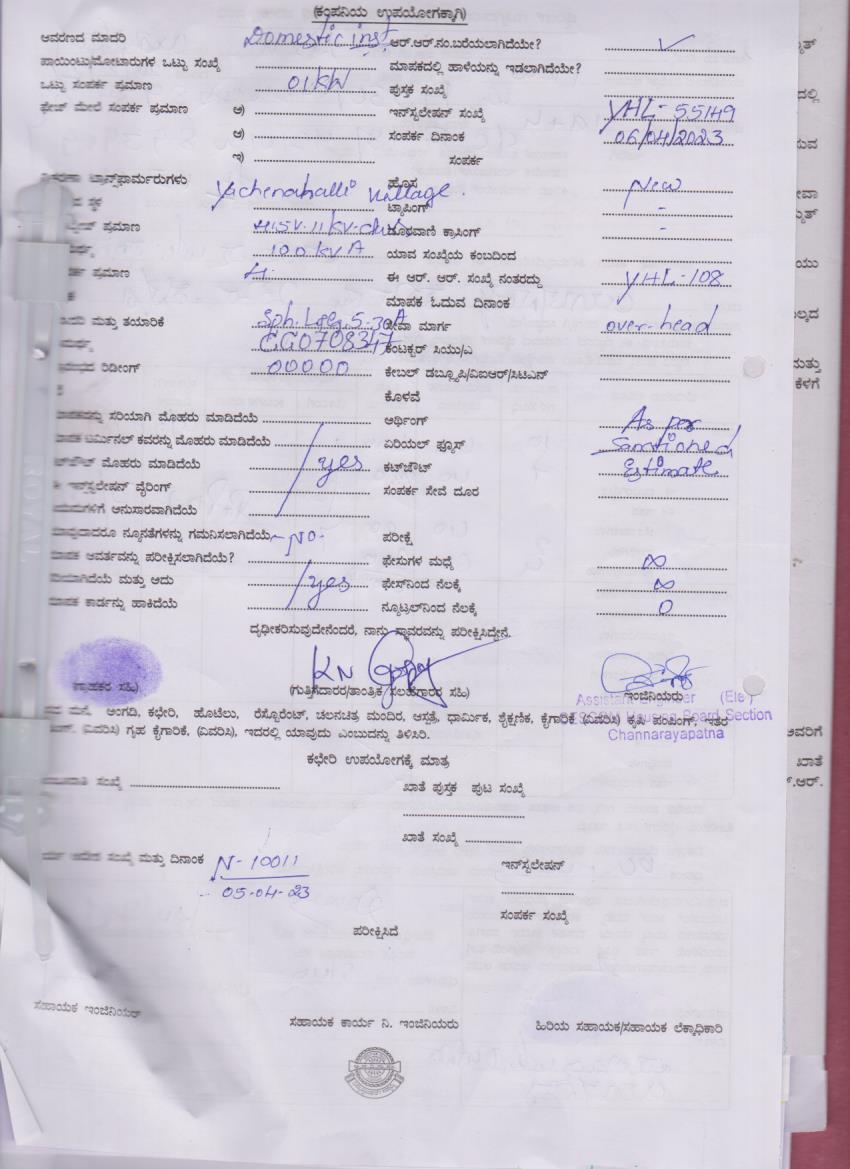 (ಕಂಪನಿಯ ಉಪಯೋಗಕ್ಕಾಗಿ)
ಆವರಣದ ಮಾದರಿ Domestic inst ಆರ್.ಆರ್.ನಂ.ಬರೆಯಲಾಗಿದೆಯೇ? ✓
ಪಾಯಿಂಟ್ಸು/ಮೋಟಾರುಗಳ ಒಟ್ಟು ಸಂಖ್ಯೆ ಮಾಪಕದಲ್ಲಿ ಹಾಳೆಯನ್ನು ಇಡಲಾಗಿದೆಯೇ?
ಒಟ್ಟು ಸಂಪರ್ಕ ಪ್ರಮಾಣ 01KW ಪುಸ್ತಕ ಸಂಖ್ಯೆ
ಫೇಜ್ ಮೇಲೆ ಸಂಪರ್ಕ ಪ್ರಮಾಣ ಅ) ಇನ್‌ಸ್ಟಲೇಷನ್ ಸಂಖ್ಯೆ YHL-55149
ಆ) ಸಂಪರ್ಕ ದಿನಾಂಕ 06/04/2023
ಇ) ಸಂಪರ್ಕ
ಟ್ರಾನ್ಸ್‌ಫಾರ್ಮರುಗಳು ಹೊಸ New
ಸ್ಥಳ Yachenahalli Village. ಟ್ಯಾಪಿಂಗ್ -
ಪ್ರಮಾಣ ದೂರವಾಣಿ ಕ್ರಾಸಿಂಗ್ -
100 KVA ಯಾವ ಸಂಖ್ಯೆಯ ಕಂಬದಿಂದ
ಪ್ರಮಾಣ ಈ ಆರ್. ಆರ್. ಸಂಖ್ಯೆ ನಂತರದ್ದು YHL-108
ಮಾಪಕ ಓದುವ ದಿನಾಂಕ
ಮತ್ತು ತಯಾರಿಕೆ ಸೇವಾ ಮಾರ್ಗ over-head
CG0708347 ಕಂಟಕ್ಟರ್ ಸಿಯು/ಎ
ರಿಡೀಂಗ್ 00000 ಕೇಬಲ್ ಡಬ್ಲ್ಯೂಪಿ/ವಿಐಆರ್/ಸಿಟಿಎನ್
ಕೊಳವೆ
ಸರಿಯಾಗಿ ಮೊಹರು ಮಾಡಿದೆಯೆ ಅರ್ಥಿಂಗ್ As per
ಟರ್ಮಿನಲ್ ಕವರನ್ನು ಮೊಹರು ಮಾಡಿದೆಯೆ ಏರಿಯಲ್ ಫ್ಯೂಸ್ Sanctioned
ಮೊಹರು ಮಾಡಿದೆಯೆ yes ಕಟ್‌ಔಟ್ Estimate
ಇನ್‌ಸ್ಟಲೇಷನ್ ವೈರಿಂಗ್ ಸಂಪರ್ಕ ಸೇವೆ ದೂರ
ಅನುಸಾರವಾಗಿದೆಯೆ
ನ್ಯೂನತೆಗಳನ್ನು ಗಮನಿಸಲಾಗಿದೆಯೆ -NO- ಪರೀಕ್ಷೆ
ಮಾಪಕ ಆವರ್ತವನ್ನು ಪರೀಕ್ಷಿಸಲಾಗಿದೆಯೆ? ಫೇಸುಗಳ ಮಧ್ಯೆ ∞
ಮತ್ತು ಅದು yes ಫೇಸ್‌ನಿಂದ ನೆಲಕ್ಕೆ ∞
ಕಾರ್ಡನ್ನು ಹಾಕಿದೆಯೆ ನ್ಯೂಟ್ರಲ್‌ನಿಂದ ನೆಲಕ್ಕೆ 0
ದೃಢೀಕರಿಸುವುದೇನೆಂದರೆ, ನಾನು ಸ್ಥಾವರವನ್ನು ಪರೀಕ್ಷಿಸಿದ್ದೇನೆ.
(ಗ್ರಾಹಕರ ಸಹಿ) (ಗುತ್ತಿಗೆದಾರರ/ತಾಂತ್ರಿಕ ಸಲಹೆಗಾರರ ಸಹಿ) ಇಂಜಿನಿಯರು
Assistant Engineer (Ele)
Board Section
Channarayapatna
ಮನೆ, ಅಂಗಡಿ, ಕಛೇರಿ, ಹೊಟೆಲು, ರೆಸ್ಟೋರೆಂಟ್, ಚಲನಚಿತ್ರ ಮಂದಿರ, ಆಸ್ಪತ್ರೆ, ಧಾರ್ಮಿಕ, ಶೈಕ್ಷಣಿಕ, ಕೈಗಾರಿಕೆ (ವಿವರಿಸಿ) ಕೃಷಿ ಪಂಪಿಂಗ್, ಇತರ
(ವಿವರಿಸಿ) ಗೃಹ ಕೈಗಾರಿಕೆ, (ವಿವರಿಸಿ), ಇದರಲ್ಲಿ ಯಾವುದು ಎಂಬುದನ್ನು ತಿಳಿಸಿರಿ.
ಕಛೇರಿ ಉಪಯೋಗಕ್ಕೆ ಮಾತ್ರ
ಸಂಖ್ಯೆ ಖಾತೆ ಪುಸ್ತಕ ಪುಟ ಸಂಖ್ಯೆ
ಖಾತೆ ಸಂಖ್ಯೆ
ಸಂಖ್ಯೆ ಮತ್ತು ದಿನಾಂಕ N-10011 ಇನ್‌ಸ್ಟಲೇಷನ್
05-04-23
ಸಂಪರ್ಕ ಸಂಖ್ಯೆ
ಪರೀಕ್ಷಿಸಿದೆ
ಸಹಾಯಕ ಇಂಜಿನಿಯರ್
ಸಹಾಯಕ ಕಾರ್ಯ ನಿ. ಇಂಜಿನಿಯರು ಹಿರಿಯ ಸಹಾಯಕ/ಸಹಾಯಕ ಲೆಕ್ಕಾಧಿಕಾರಿ